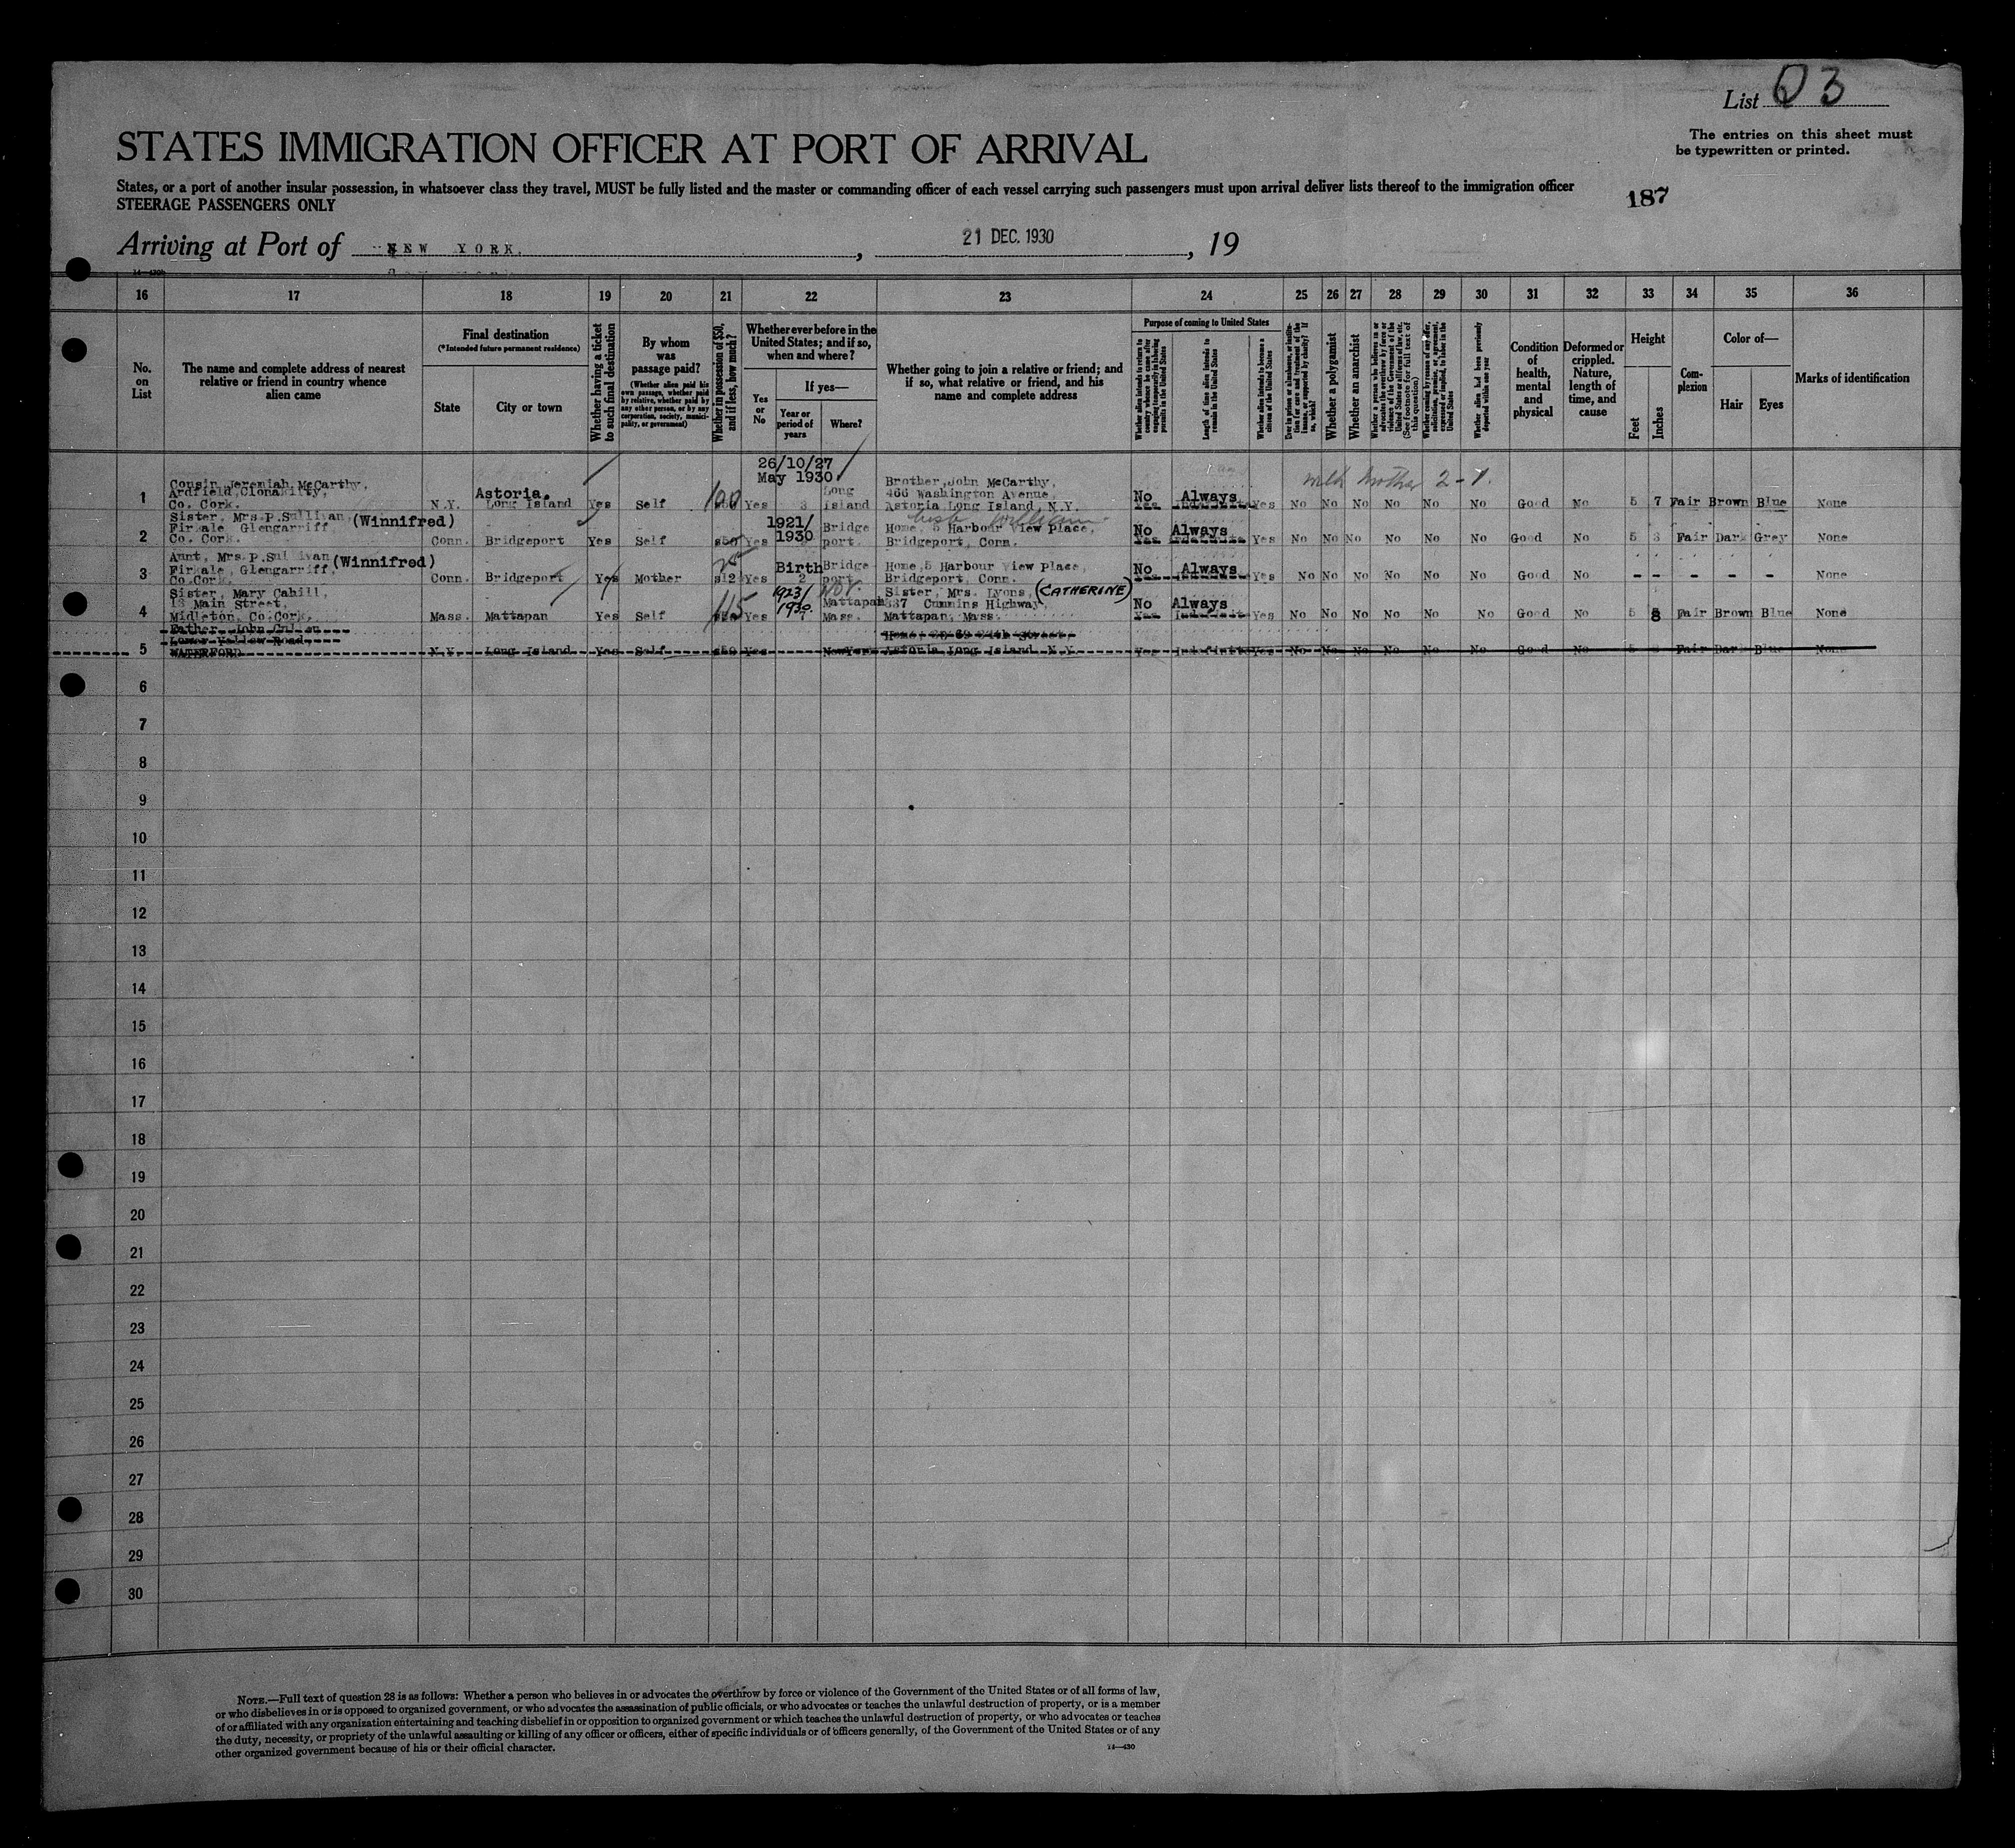 List 03
The entries on this sheet must
be typewritten or printed.
STATES IMMIGRATION OFFICER AT PORT OF ARRIVAL
States, or a port of another insular possession, in whatsoever class they travel, MUST be fully listed and the master or commanding officer of each vessel carrying such passengers must upon arrival deliver lists thereof to the immigration officer
STEERAGE PASSENGERS ONLY
187
Arriving at Port of NEW YORK. , 21 DEC. 1930 , 19
16 17 18 19 20 21 22 23 24 25 26 27 28 29 30 31 32 33 34 35 36
No.
on
List
The name and complete address of nearest
relative or friend in country whence
alien came
Final destination
(*Intended future permanent residence)
State
City or town
Whether having a ticket
to such final destination
By whom
was
passage paid?
(Whether alien paid his
own passage, whether paid
by relative, whether paid by
any other person, or by any
corporation, society, munici-
pality, or government)
Whether in possession of $50,
and if less, how much?
Whether ever before in the
United States; and if so,
when and where?
Yes
or
No
If yes—
Year or
period of
years
Where?
Whether going to join a relative or friend; and
if so, what relative or friend, and his
name and complete address
Purpose of coming to United States
Whether alien intends to return to
country whence he came after
engaging temporarily in laboring
pursuits in the United States
Length of time alien intends to
remain in the United States
Whether alien intends to become a
citizen of the United States
Ever in prison or almshouse, or institu-
tion for care and treatment of the
insane, or supported by charity? If
so, which?
Whether a polygamist
Whether an anarchist
Whether a person who believes in or
advocates the overthrow by force or
violence of the Government of the
United States or all forms of law, etc.
(See footnote for full text of
this question)
Whether coming by reason of any offer,
solicitation, promise, or agreement,
expressed or implied, to labor in the
United States
Whether alien had been previously
deported within one year
Condition
of
health,
mental
and
physical
Deformed or
crippled.
Nature,
length of
time, and
cause
Height
Feet
Inches
Com-
plexion
Color of—
Hair
Eyes
Marks of identification
26/10/27
May 1930
Cousin Jeremiah McCarthy,
Ardfield, Clonakilty,
Co. Cork.
1 N.Y. Astoria, Long Island Yes Self 100 $50 Yes 3 Long Island
Brother, John McCarthy,
466 Washington Avenue,
Astoria Long Island, N.Y.
No Always
Yes Indefinite Yes No No No No No No Good No 5 7 Fair Brown Blue None
Sister, Mrs. P. Sullivan, (Winnifred)
Firkale Glengarriff,
Co. Cork.
2 Conn. Bridgeport Yes Self $50 Yes 1921/ 1930 Bridge port.
Home, 5 Harbour View Place,
Bridgeport, Conn.
No Always
Yes Indefinite Yes No No No No No No Good No 5 3 Fair Dark Grey None
Aunt, Mrs. P. Sullivan (Winnifred)
Firkale, Glengarriff,
Co. Cork.
3 Conn. Bridgeport Yes Mother 25 $12 Yes Birth 2 Bridge port
Home, 5 Harbour View Place,
Bridgeport, Conn.
No Always
Yes Indefinite Yes No No No No No No Good No - - - - - None
Sister, Mary Cahill,
13 Main Street,
Midleton, Co. Cork.
4 Mass. Mattapan Yes Self 115 Yes 1923/ 1930. 7 Nov. Mattapan Mass.
Sister, Mrs. Lyons, (CATHERINE)
337 Cummins Highway,
Mattapan, Mass.
No Always
Yes Indefinite Yes No No No No No No Good No 5 8 Fair Brown Blue None
Father, John Cullen
Lower Yellow Road,
WATERFORD
5 N.Y. Long Island Yes Self $50 Yes New York
Astoria Long Island, N.Y.
Yes Indefinite Yes No No No No No No Good No 5 Fair Dark Blue None
6
7
8
9
10
11
12
13
14
15
16
17
18
19
20
21
22
23
24
25
26
27
28
29
30
NOTE.—Full text of question 28 is as follows: Whether a person who believes in or advocates the overthrow by force or violence of the Government of the United States or of all forms of law,
or who disbelieves in or is opposed to organized government, or who advocates the assassination of public officials, or who advocates or teaches the unlawful destruction of property, or is a member
of or affiliated with any organization entertaining and teaching disbelief in or opposition to organized government or which teaches the unlawful destruction of property, or who advocates or teaches
the duty, necessity, or propriety of the unlawful assaulting or killing of any officer or officers, either of specific individuals or of officers generally, of the Government of the United States or of any
other organized government because of his or their official character.
14—430